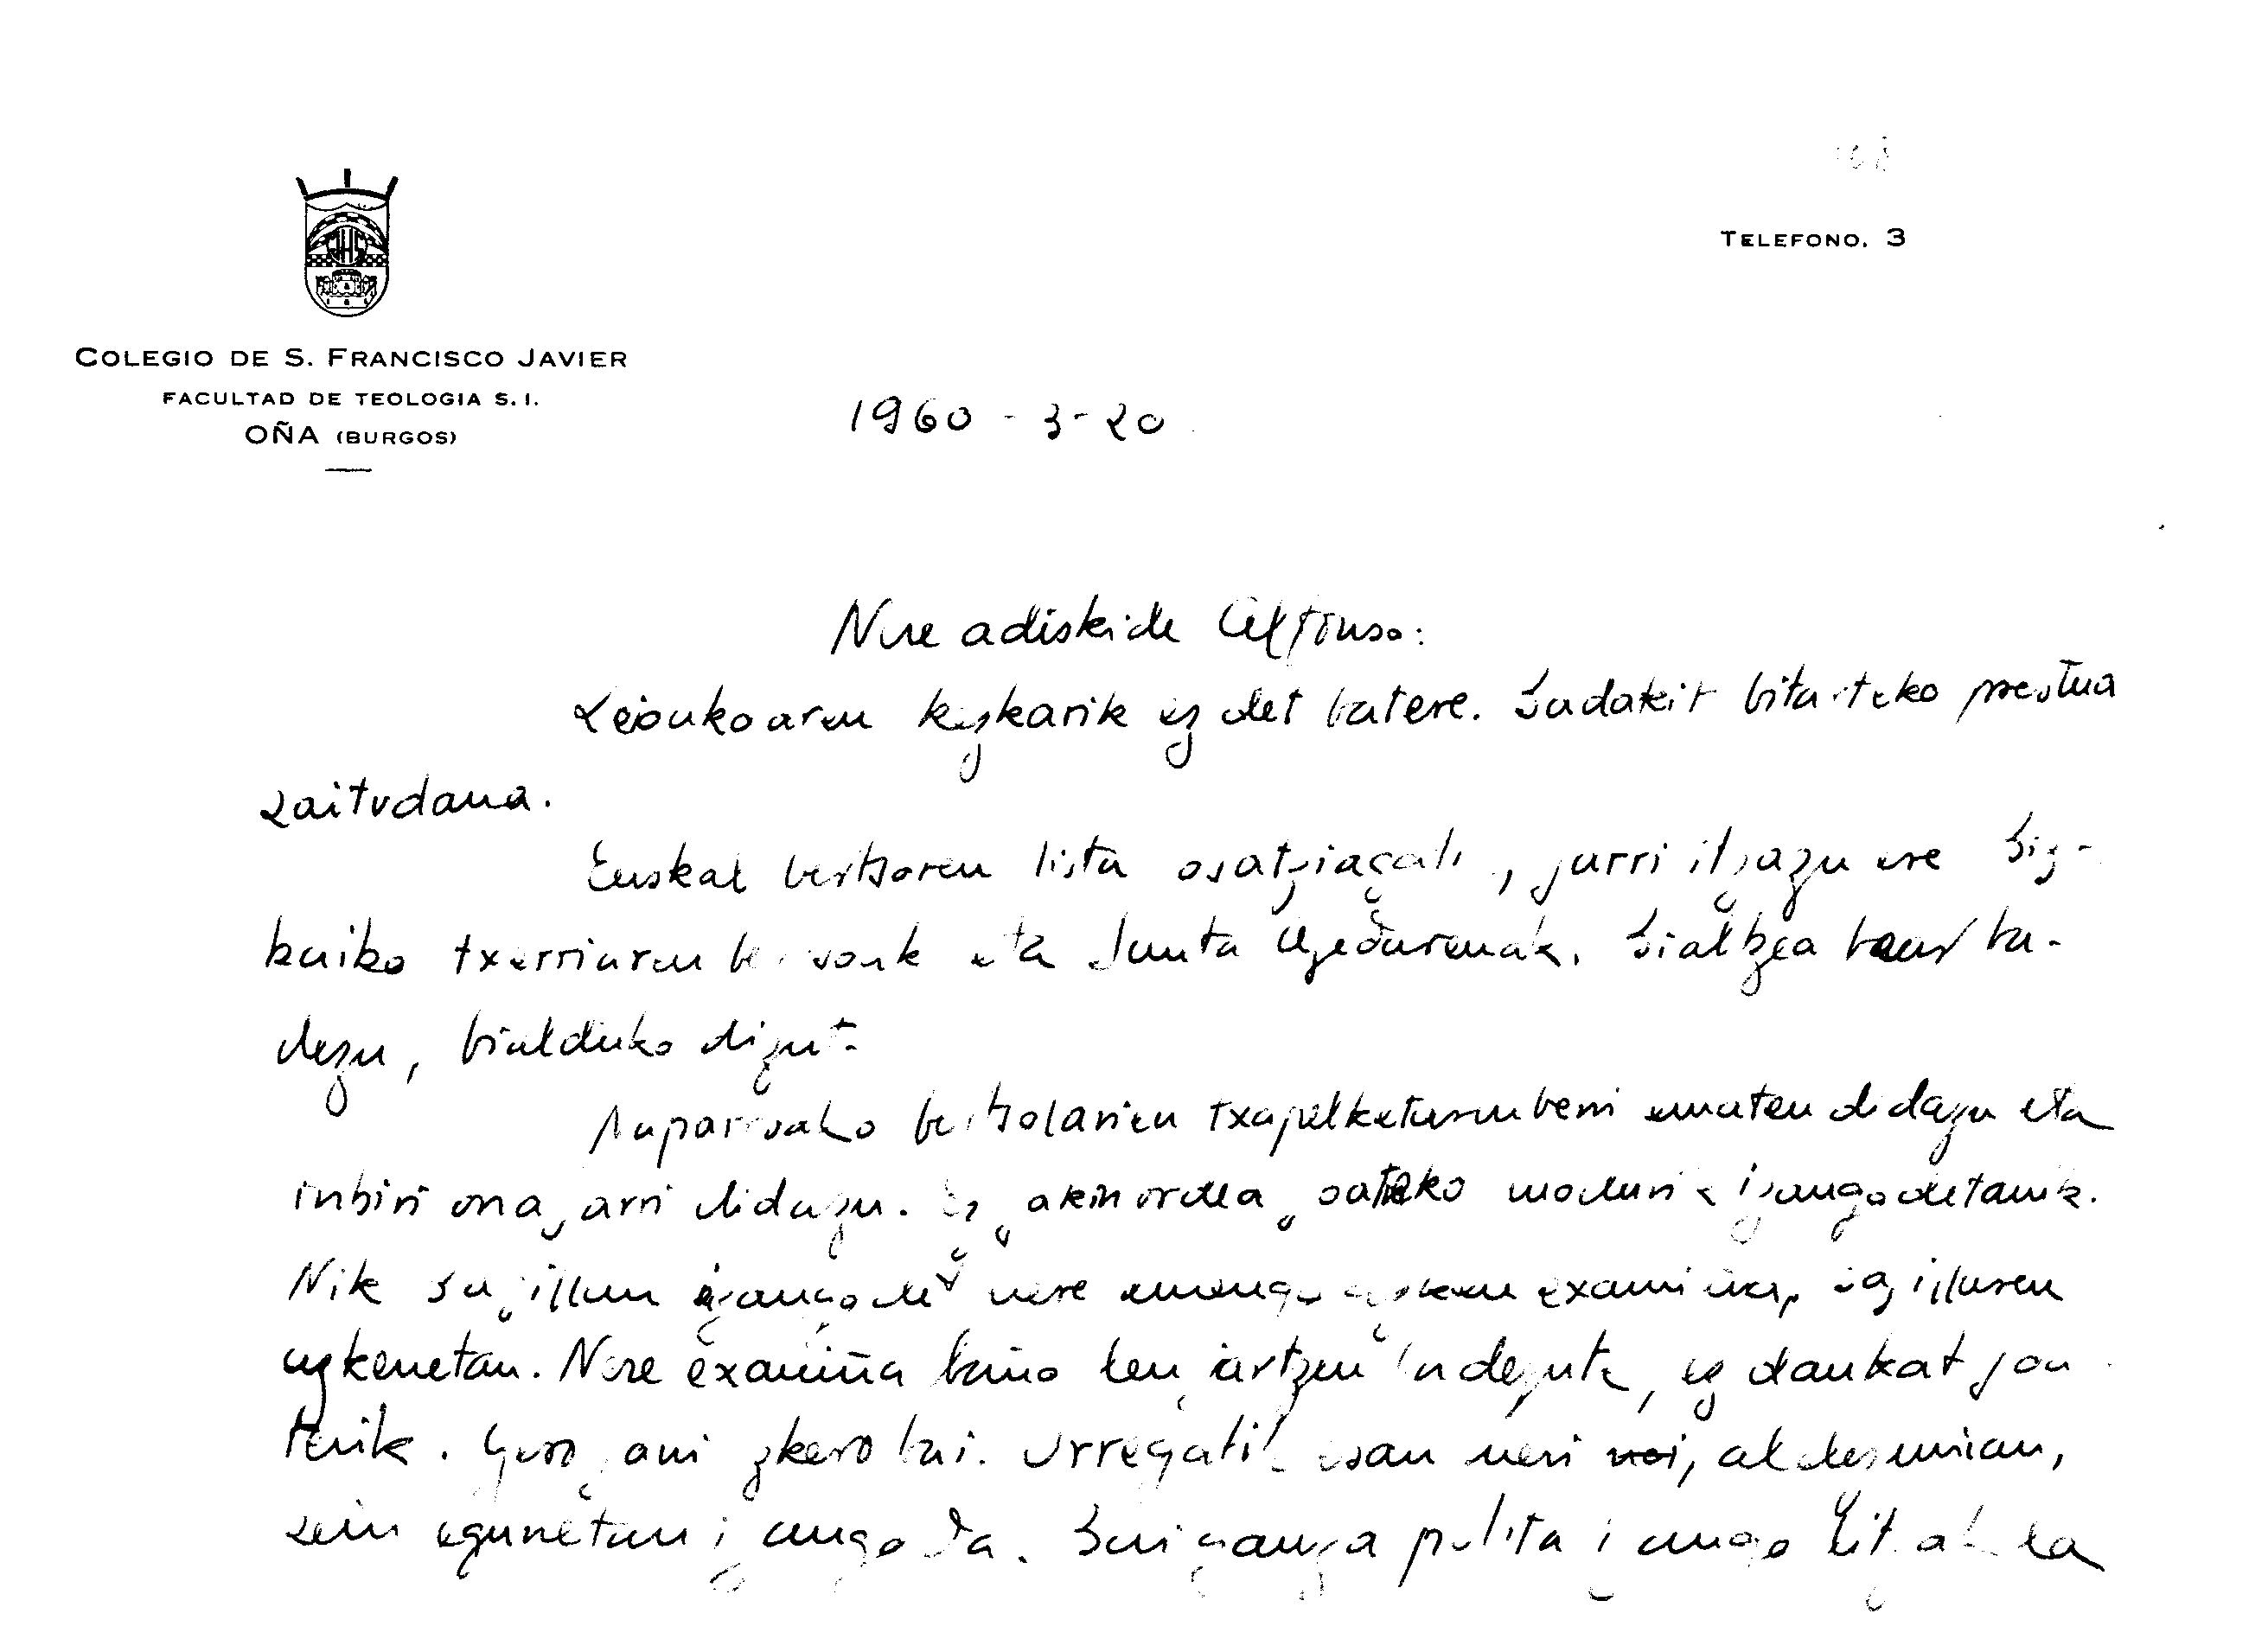 TELEFONO. 3
COLEGIO DE S. FRANCISCO JAVIER
FACULTAD DE TEOLOGIA S. I.
OÑA (BURGOS)
1960 - 3 - 20
Nere adiskide Alfonso:
kezkarik ez det batere. Badakit bitarteko prestua
zaitudana.
Euskal bertsoren lista osatziagatik, jarri itzazu ere Biz-
kaiko txerriaren bertsoak eta Santa Agedarenak. Bialtzea naiz ba-
dezu, bialduko dizut.
Naparroako bertsolarien txapelketaren berri ematen didazu eta
inbiri ona jarri didazu. Ez jakin ordea joateko modurik izango detanik.
Nik Bagillan izango det nere emengo azken examiña, bagillaren
azkenetan. Nere examiña baño len jartzen badezute, ez daukat joa-
terik. Gero jarri ezkero bai. Orregatik esan neri, al dezunian,
zein egunetan izango da. Baigauza polita izango litzake la